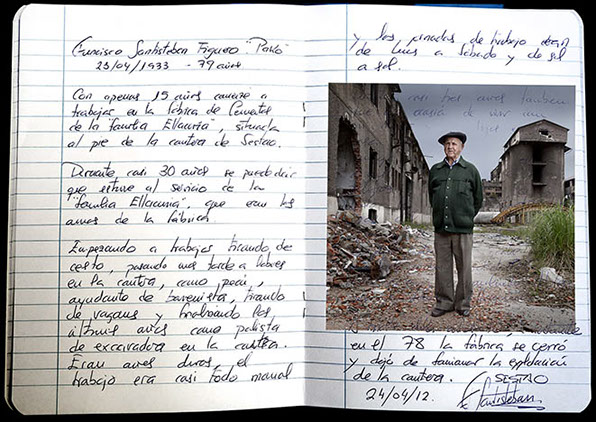 Francisco Santisteban Figuero "Patxo"
23/04/1933 - 79 años
Con apenas 15 años comencé a
trabajar en la fábrica de Cementos
de la "familia Ellacuria", situada
al pie de la cantera de Sestao.
Durante casi 30 años se puede decir
que estuve al servicio de la
"familia Ellacuria", que eran los
amos de la fábrica.
Empezando a trabajar tirando de
cesto, pasando más tarde a labores
en la cantera, como peón,
ayudante de barrenista, tirando
de vagones y finalmente los
últimos años como palista
de excavadora en la cantera.
Eran años duros, el
trabajo era casi todo manual
y las jornadas de trabajo eran
de lunes a sábado y de sol
a sol.
casi tres años
en el 78 la fábrica se cerró
y dejó de funcionar la explotación
de la cantera. SESTAO
24/04/12. Santisteban